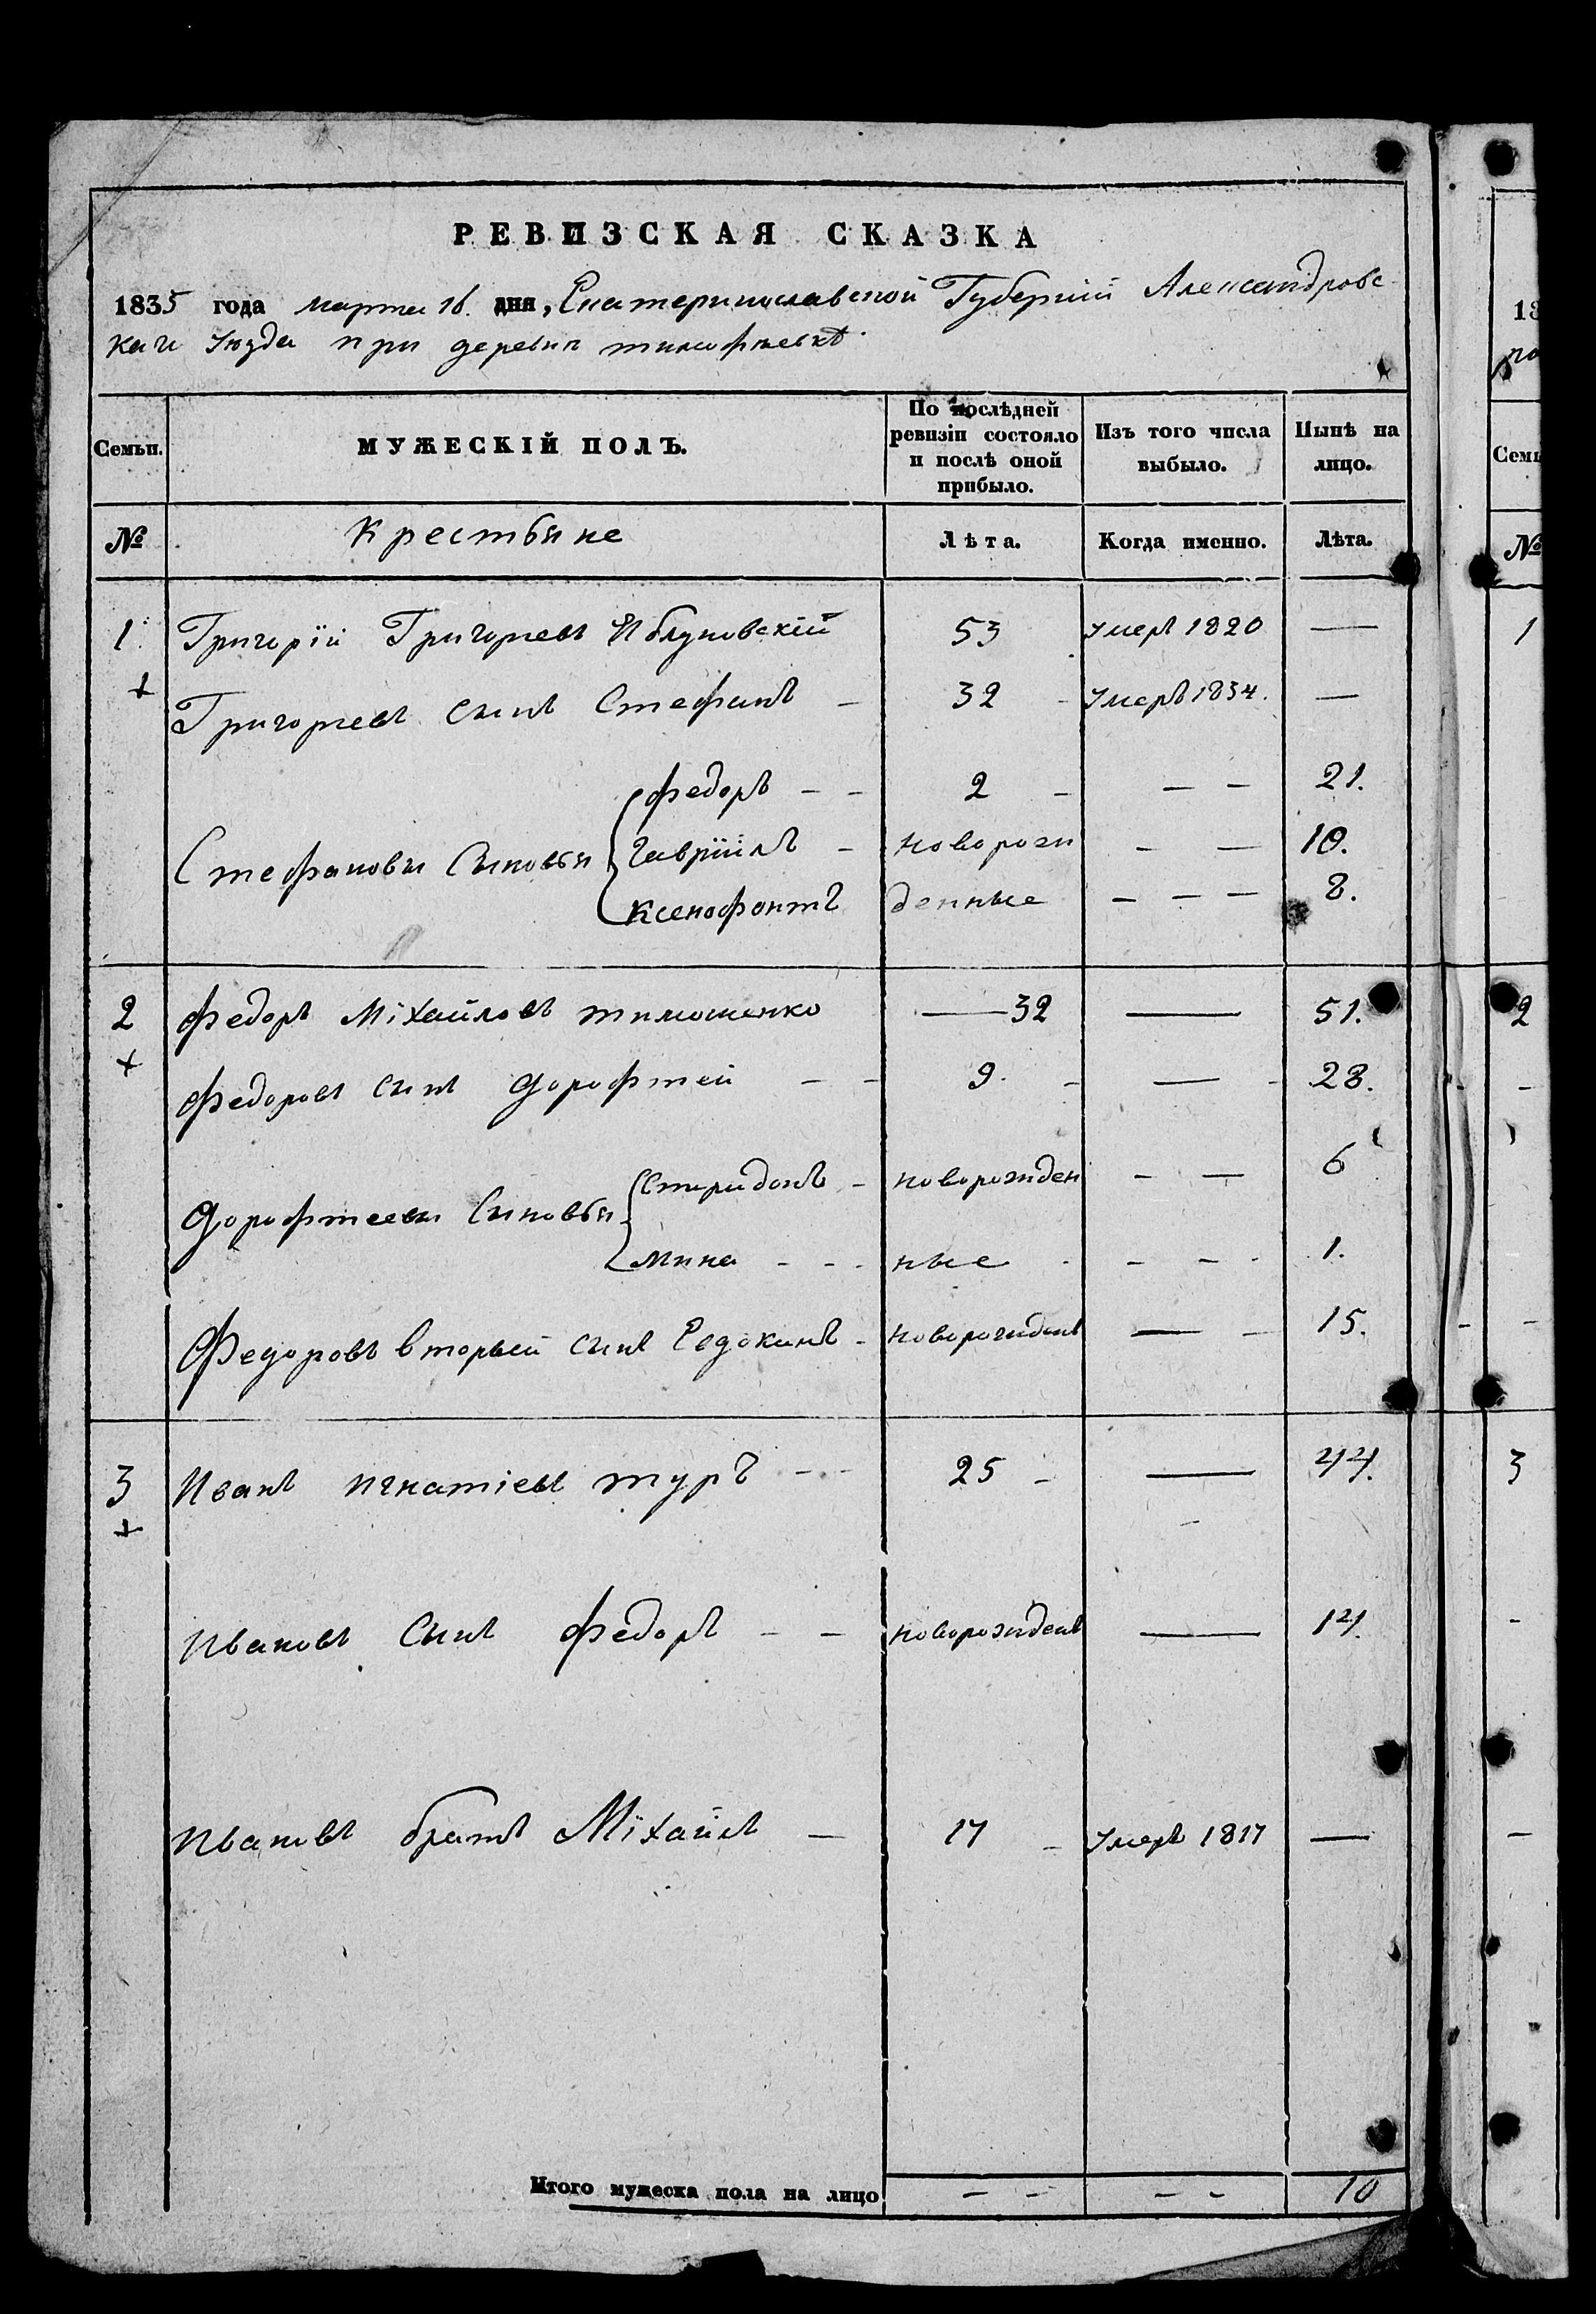 РЕВИЗСКАЯ СКАЗКА
1835 года марта 16. дня, Екатеринославской Губерніи Александровс-
каго Уезда при деревни тимофѣевкѣ
Семьи. МУЖЕСКІЙ ПОЛЪ. По послѣдней ревизіи состояло и послѣ оной прибыло. Изъ того числа выбыло. Нынѣ на лицо.
№ Крестьяне Лѣта. Когда именно. Лѣта.
1. Григорій Григорьевъ Яблуновскій 53 умеръ 1820 —
Григорьевъ сынъ Стефанъ — 32 - умеръ 1834. —
Федоръ — — 2 — — — 21.
Стефановы Сыновья
Гавріилъ — новорож — — 10.
Ксенофонтъ денные — — — 8.
2 Федоръ Міхайловъ тимошенко — 32 — 51.
Федоровъ сынъ Дорофтей — — 9. - — - 28.
Спиридонъ - новорожден - — 6
Дорофтеевы Сыновья
Мина - - - ные - - - - 1.
Федоровъ вторый сынъ Евдокимъ - новорожденъ — - 15.
3 Иванъ игнатіевъ туръ - - 25 - — 44.
Ивановъ Сынъ Федоръ - — новорожденъ — 14.
Ивановъ братъ Міхайлъ — 17 - умеръ 1817 —
Итого мужеска пола на лицо — — — — 10
18
Семь
№
1
2
3